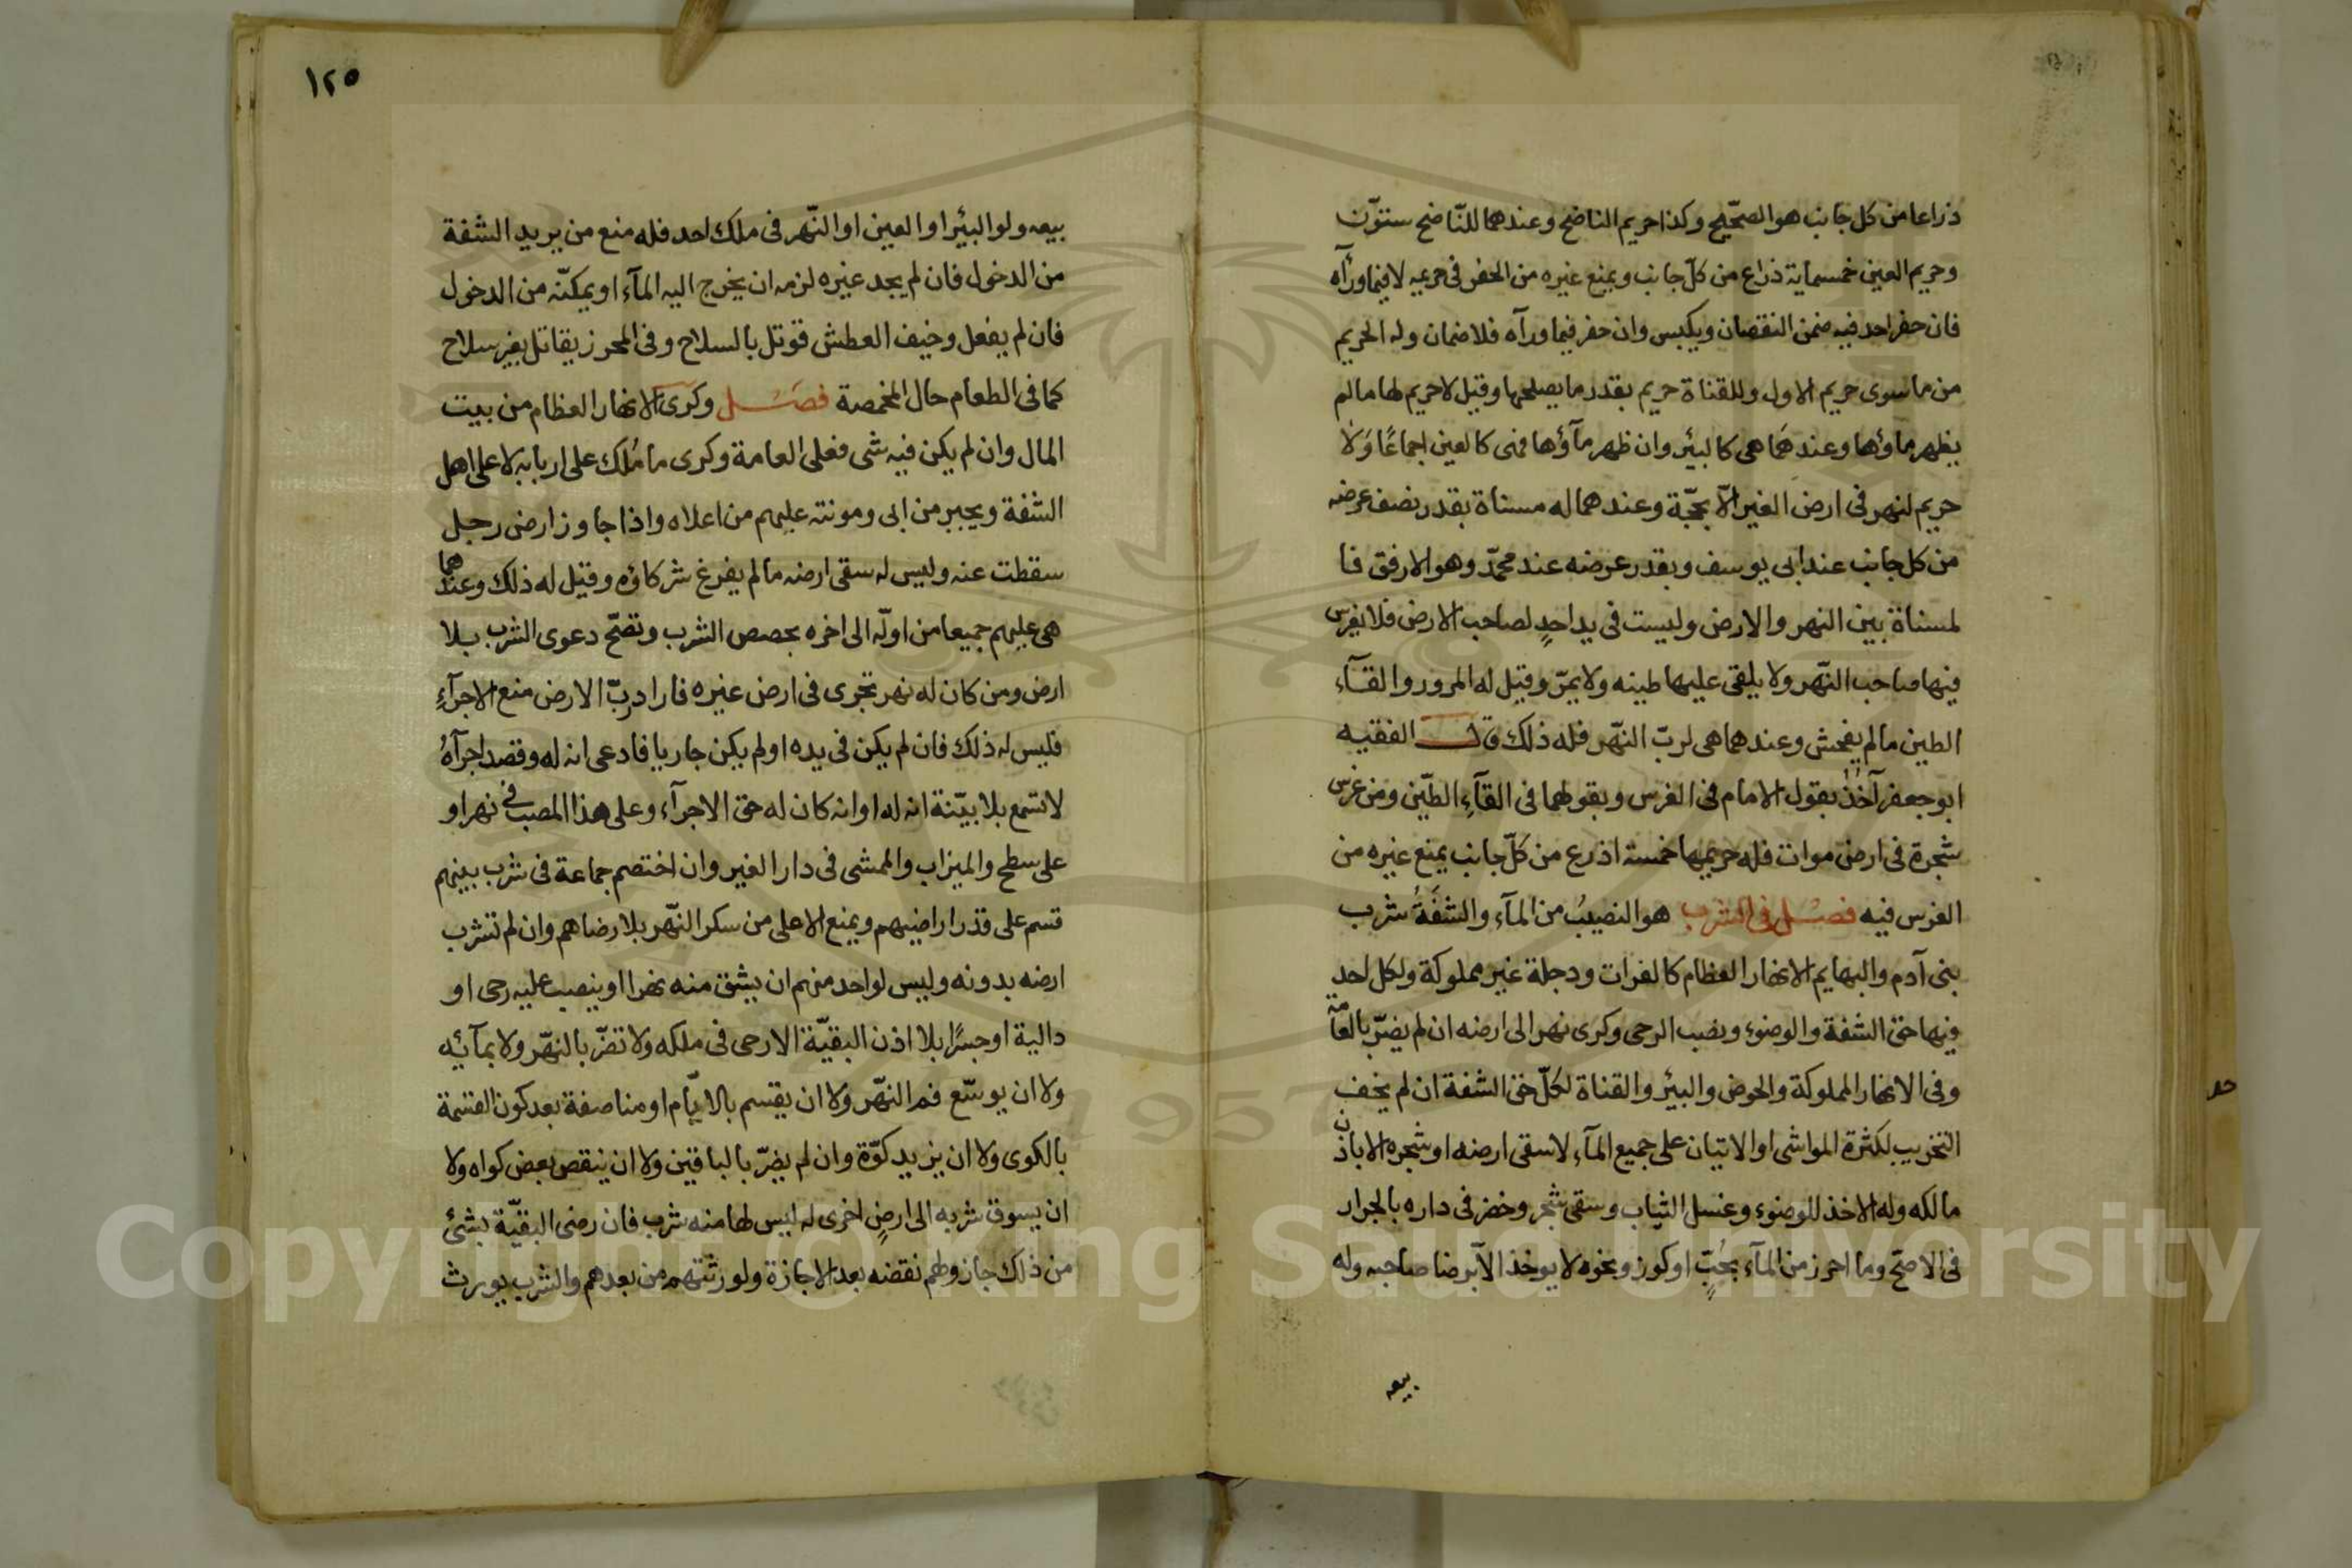 ذراعا من كل جانب هو الصحّيح وكذا حريم الناضح وعندهما للنّاضح ستوّن
وحريم العين خمسماية ذراع من كلّ جانب ويمنع غيره من الحفر فى حريمه لا فيما ورآه
فان حفر احد فيه ضمن النقصان ويكبس وان حفر فيما ورآه فلا ضمان وله الحريم
من ما سوى حريم الاول وللقناة حريم بقدر ما يصلحها وقيل لا حريم لها مالم
يظهر ماؤها وعندهما هى كالبئر وان ظهر مآؤها فهى كالعين اجماعًا وَلا
حريم لنهر فى ارض الغير الّا بحجّة وعندهما له مسناة بقدر نصف عرضه
من كل جانب عند ابى يوسف وبقدر عرضه عند محمّد وهو الارفق فا
لمسناة بين النهر والارض وليست فى يد احدٍ لصاحب الارض فلا يغرس
فيها صاحب النّهر ولا يلقى عليها طينه ولا يمرّ وقيل له المرور والقآء
الطين مالم يفحش وعندهما هى لربّ النّهر فله ذلك قال الفقيه
ابو جعفر آخذ بقول الامام فى الغرس وبقولهما فى القآءِ الطّين ومن غرس
شجرة فى ارض موات فله حريمها خمسة اذرع من كلّ جانب يمنع غيره من
الغرس فيه فصل فى الشرب هو النصيبُ من المآء والشفَةُ شرب
بنى آدم والبهايم الانهار العظام كالفرات ودجلة غير مملوكة ولكل احد
فيها حق الشفة والوضوء ونصب الرحى وكرى نهر الى ارضه ان لم يضرّ بالعامّة
وفى الانهار المملوكة والحوض والبئر والقناة لكلّ حق الشفة ان لم يخف
التخريب لكثرة المواشى او الاتيان على جميع المآء لا سقى ارضه او شجره الا باذن
مالكه وله الاخذ للوضوء وغسل الثياب وسقى شجر وخضر فى داره بالجرار
فى الاصحّ وما احرز من المآء بحُبٍّ او كوز ونحوه لا يوخذ الّا برضا صاحبه وله
بيعه
١٢٥
بيعه ولو البئر او العين او النّهر فى ملك احد فله منع من يريد الشفة
من الدخول فان لم يجد غيره لزمه ان يخرج اليه المآء او يمكنّه من الدخول
فان لم يفعل وخيف العطش قوتل بالسلاح وفى المحرز يقاتل بغير سلاح
كما فى الطعام حال المخمصة فصل وكرى الانهار العظام من بيت
المال وان لم يكن فيه شى فعلى العامة وكرى ما مُلك على اربابه لا على اهل
الشفة ويجبر من ابى ومونته عليهم من اعلاه واذا جاوز ارض رجل
سقطت عنه وليس له سقى ارضه مالم يفرغ شركاؤه وقيل له ذلك وعندهما
هى عليهم جميعا من اولّه الى اخره بحصص الشرب وتصحّ دعوى الشرب بلا
ارض ومن كان له نهر تجرى فى ارض غيره فاراد ربّ الارض منع الاجرآءِ
فليس له ذلك فان لم يكن فى يده او لم يكن جاريا فادعى انه له وقصد اجرآهُ
لا تسمع بلا بيّنة انه له او انه كان له حق الاجرآء وعلى هذا المصب فى نهر او
على سطح والميزاب والممشى فى دار الغير وان اختصم جماعة فى شرب بينهم
قسم على قدر اراضيهم ويمنع الاعلى من سكر النّهر بلا رضاهم وان لم تشرب
ارضه بدونه وليس لواحد منهم ان يشق منه نهرا او ينصب عليه رحى او
دالية او جسرًا بلا اذن البقيّة الا رحى فى ملكه ولا تضرّ بالنّهر ولا بمآئه
ولا ان يوسّع فم النّهر ولا ان يقسم بالايّام او مناصفة بعد كون القسمة
بالكوى ولا ان يزيد كوّة وان لم يضرّ بالباقين ولا ان ينقص بعض كواه ولا
ان يسوق شربه الى ارضٍ اخرى له ليس لها منه شرب فان رضى البقيّة بشئ
من ذلك جاز ولهم نقضه بعد الاجازة ولورثتهم من بعدهم والشرب يورث
Copyright © King Saud University
1957